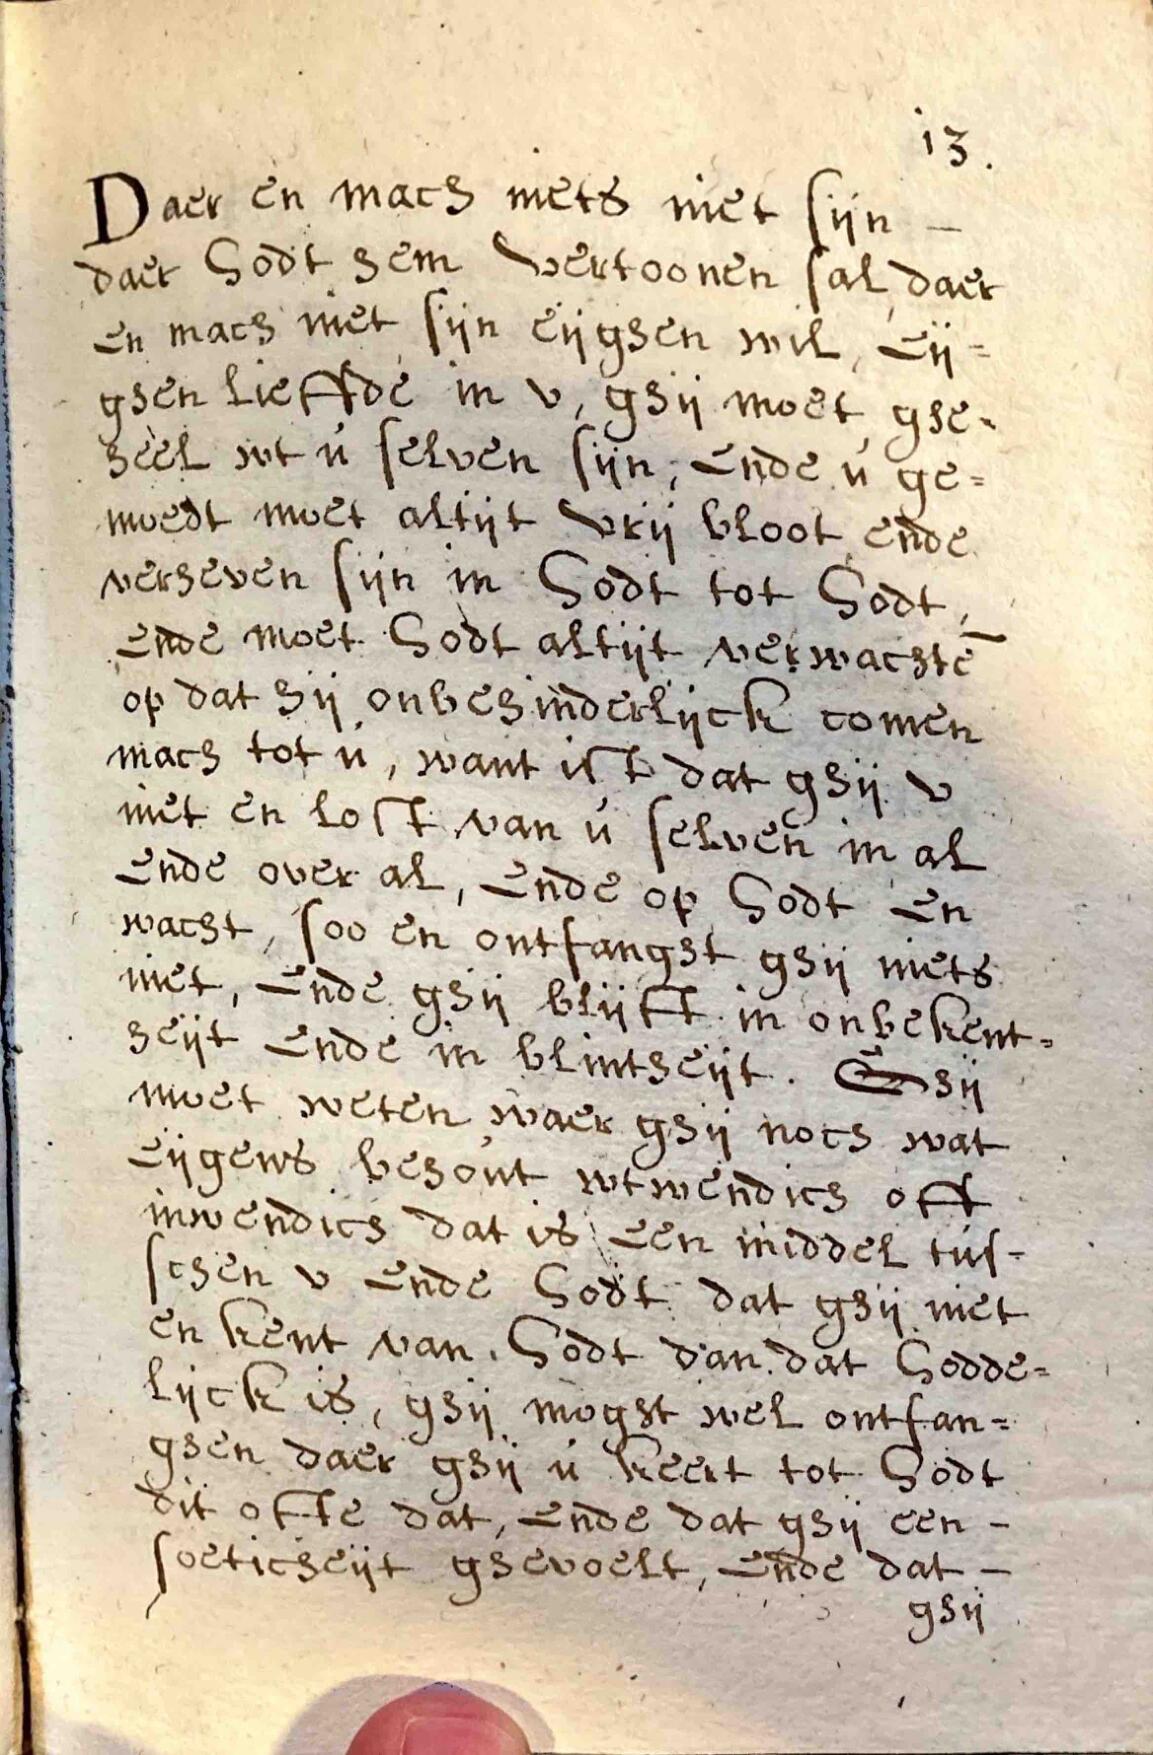 13.
Daer en mach niets niet sijn –
daer Godt hem vertoonen sal, daer
en mach niet sijn eijghen wil, eij=
ghen lieffde in v, ghij moet ghe=
heel wt ú selven sijn, ende ú ge=
moedt moet altijt vrij bloot ende
verheven sijn in Godt tot Godt,
ende moet Godt altijt verwachtē
op dat hij onbehinderlijck comen
mach tot ú, want ist dat ghij v
niet en lost van ú selven in al
ende over al, ende op Godt en
wacht, soo en ontfanght ghij niets
niet, ende ghij blijft in onbekent=
heijt ende in blintheijt. Ghij
moet weten waer ghij noch wat
eijgens behout wtwendich oft
inwendich dat is een middel tús=
schen v ende Godt dat ghij niet
en kent van Godt dan dat Godde=
lijck is, ghij moght wel ontfan=
ghen daer ghij ú keert tot Godt
dit ofte dat, ende dat ghij een –
soeticheijt ghevoelt, ende dat –
ghij